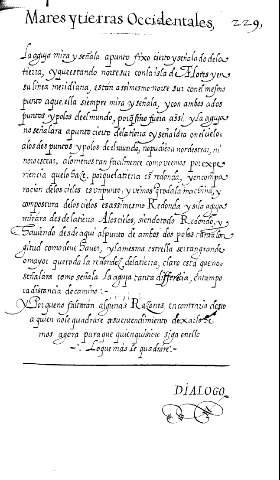 Mares y tierras Occidentales, 229,
La aguja mira y señala apunto fixo cierto y señalado dela
tierra, y que estando norte sur con la isla de Flores y en
su linea meridiana, estan assimesmo norte sur con el mesmo
punto aque ella siempre mira y señala, y con ambos ados
puntos y polos del mundo, por q̃ si no fuera assi, y la aguja
no señalara apunto cierto dela tierra o y señaldra en el cielo
alos dos puntos y polos del mundo, no pudiera nordestear, ni
noroestear, alomenos tan facilmente como vemos por expe
riencia que lo haze, porque la tierra es redonda, y en compa
racion delos cielos es un punto, y vemos
compostura delos cielos es assimesmo Redonda y si la aguja
mirara desde la tierra Alos cielos, siendo todo Redondo, y
Saliendo desde aqui al punto de ambos dos polos tanta lon
gitud como deue Hauer, y la mesma estrella ser tan grande
o mayor que toda la redondez dela tierra, claro esta que no
señalara como señala la aguja tanta differencia, en tampo
ca distancia de camino.-
Y Porque no faltaran algunas Razones en contrario desto
a quien no le quadrare a su entendimiento dexarlo he
mos agora para que quien quisiere siga en ello
Lo que mas le quadrare.-
DIALOGO